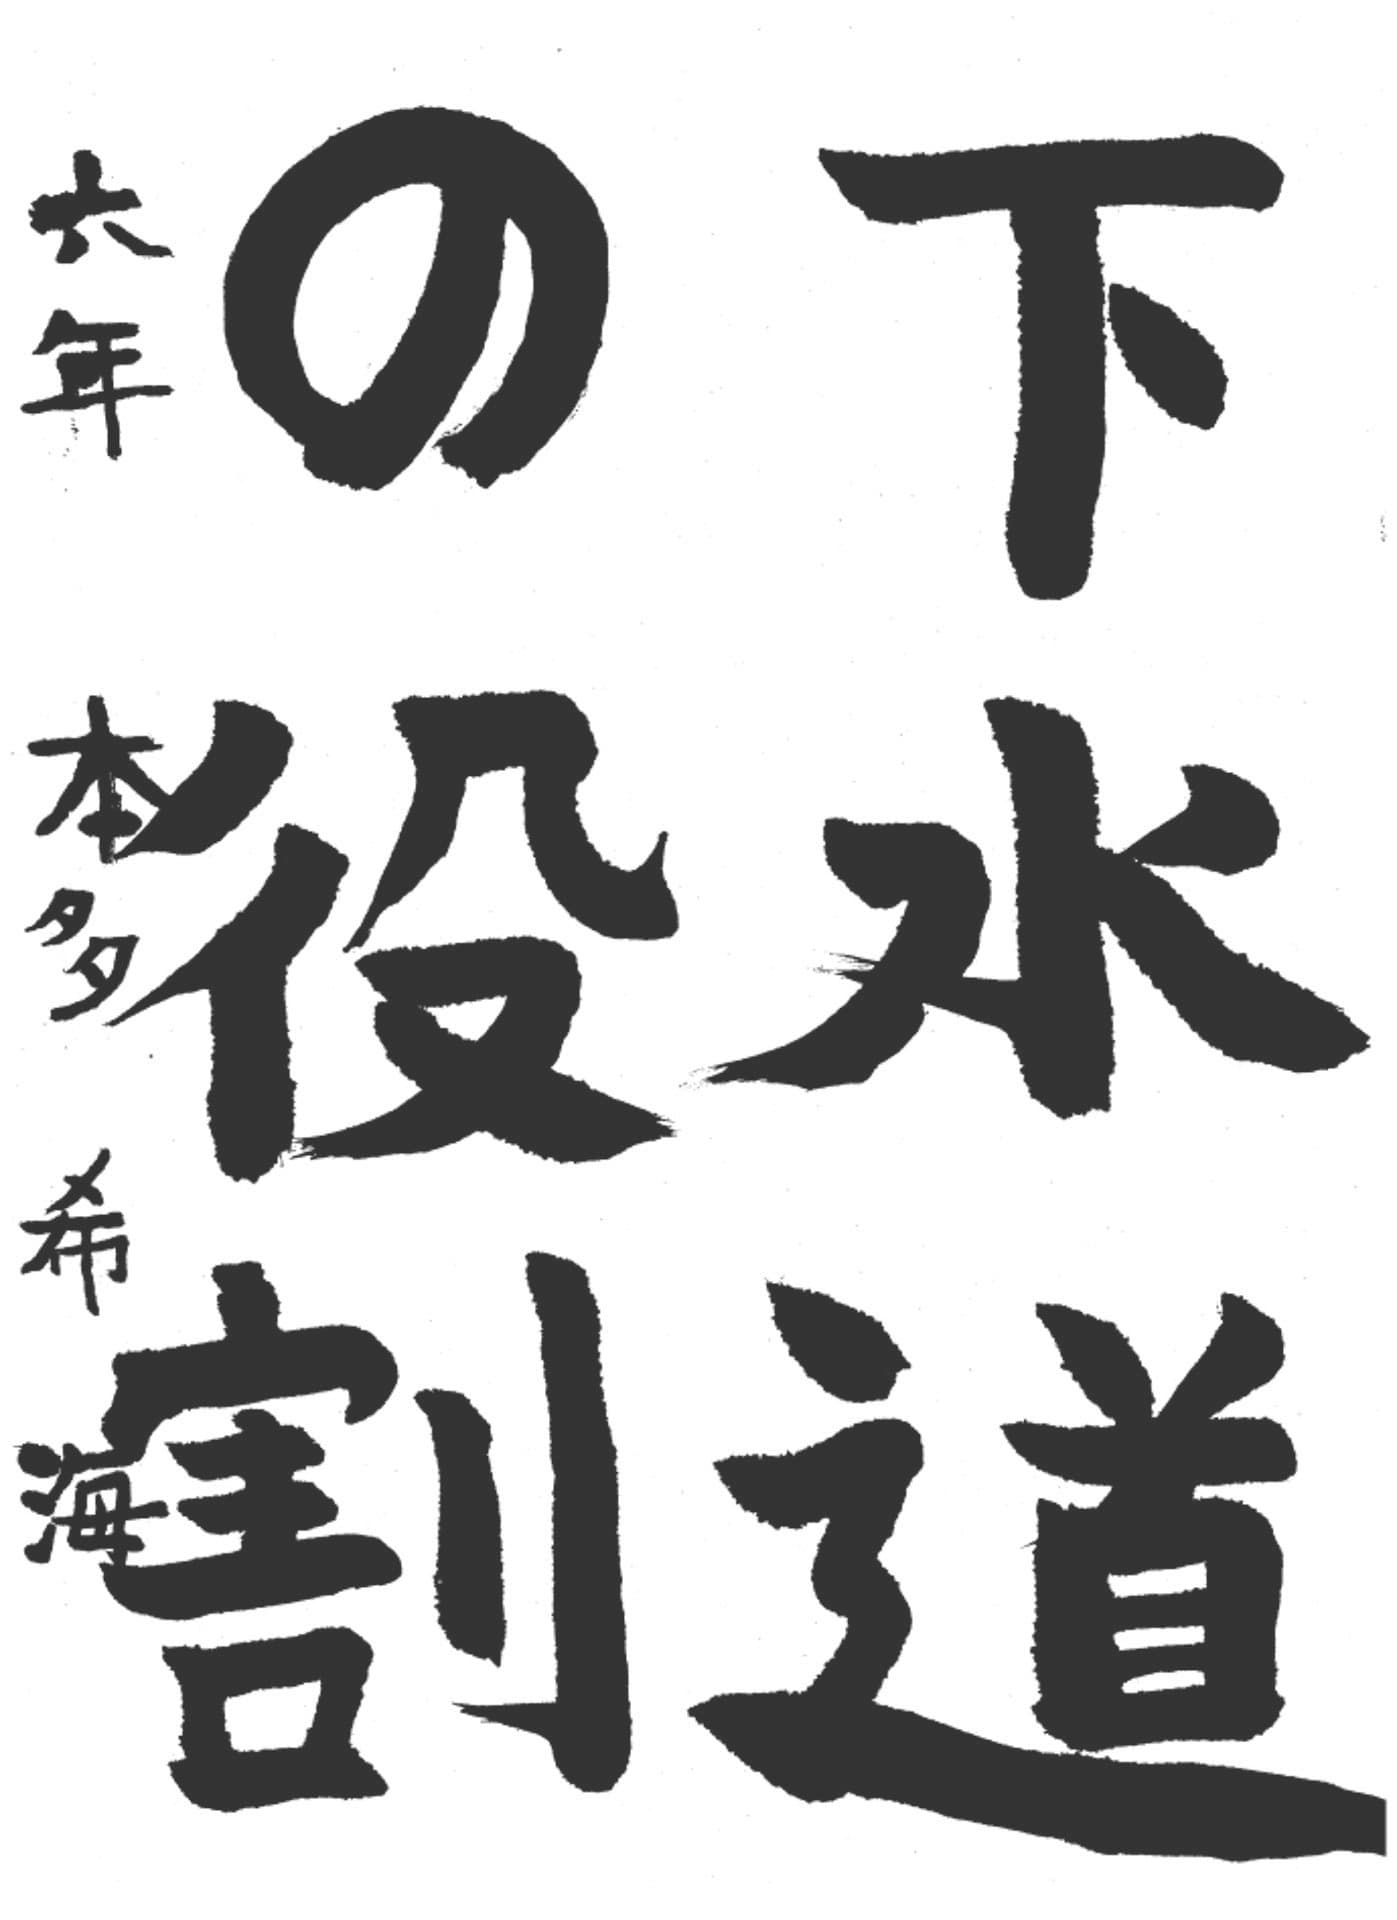 下水道
の役割
六年 本多希海